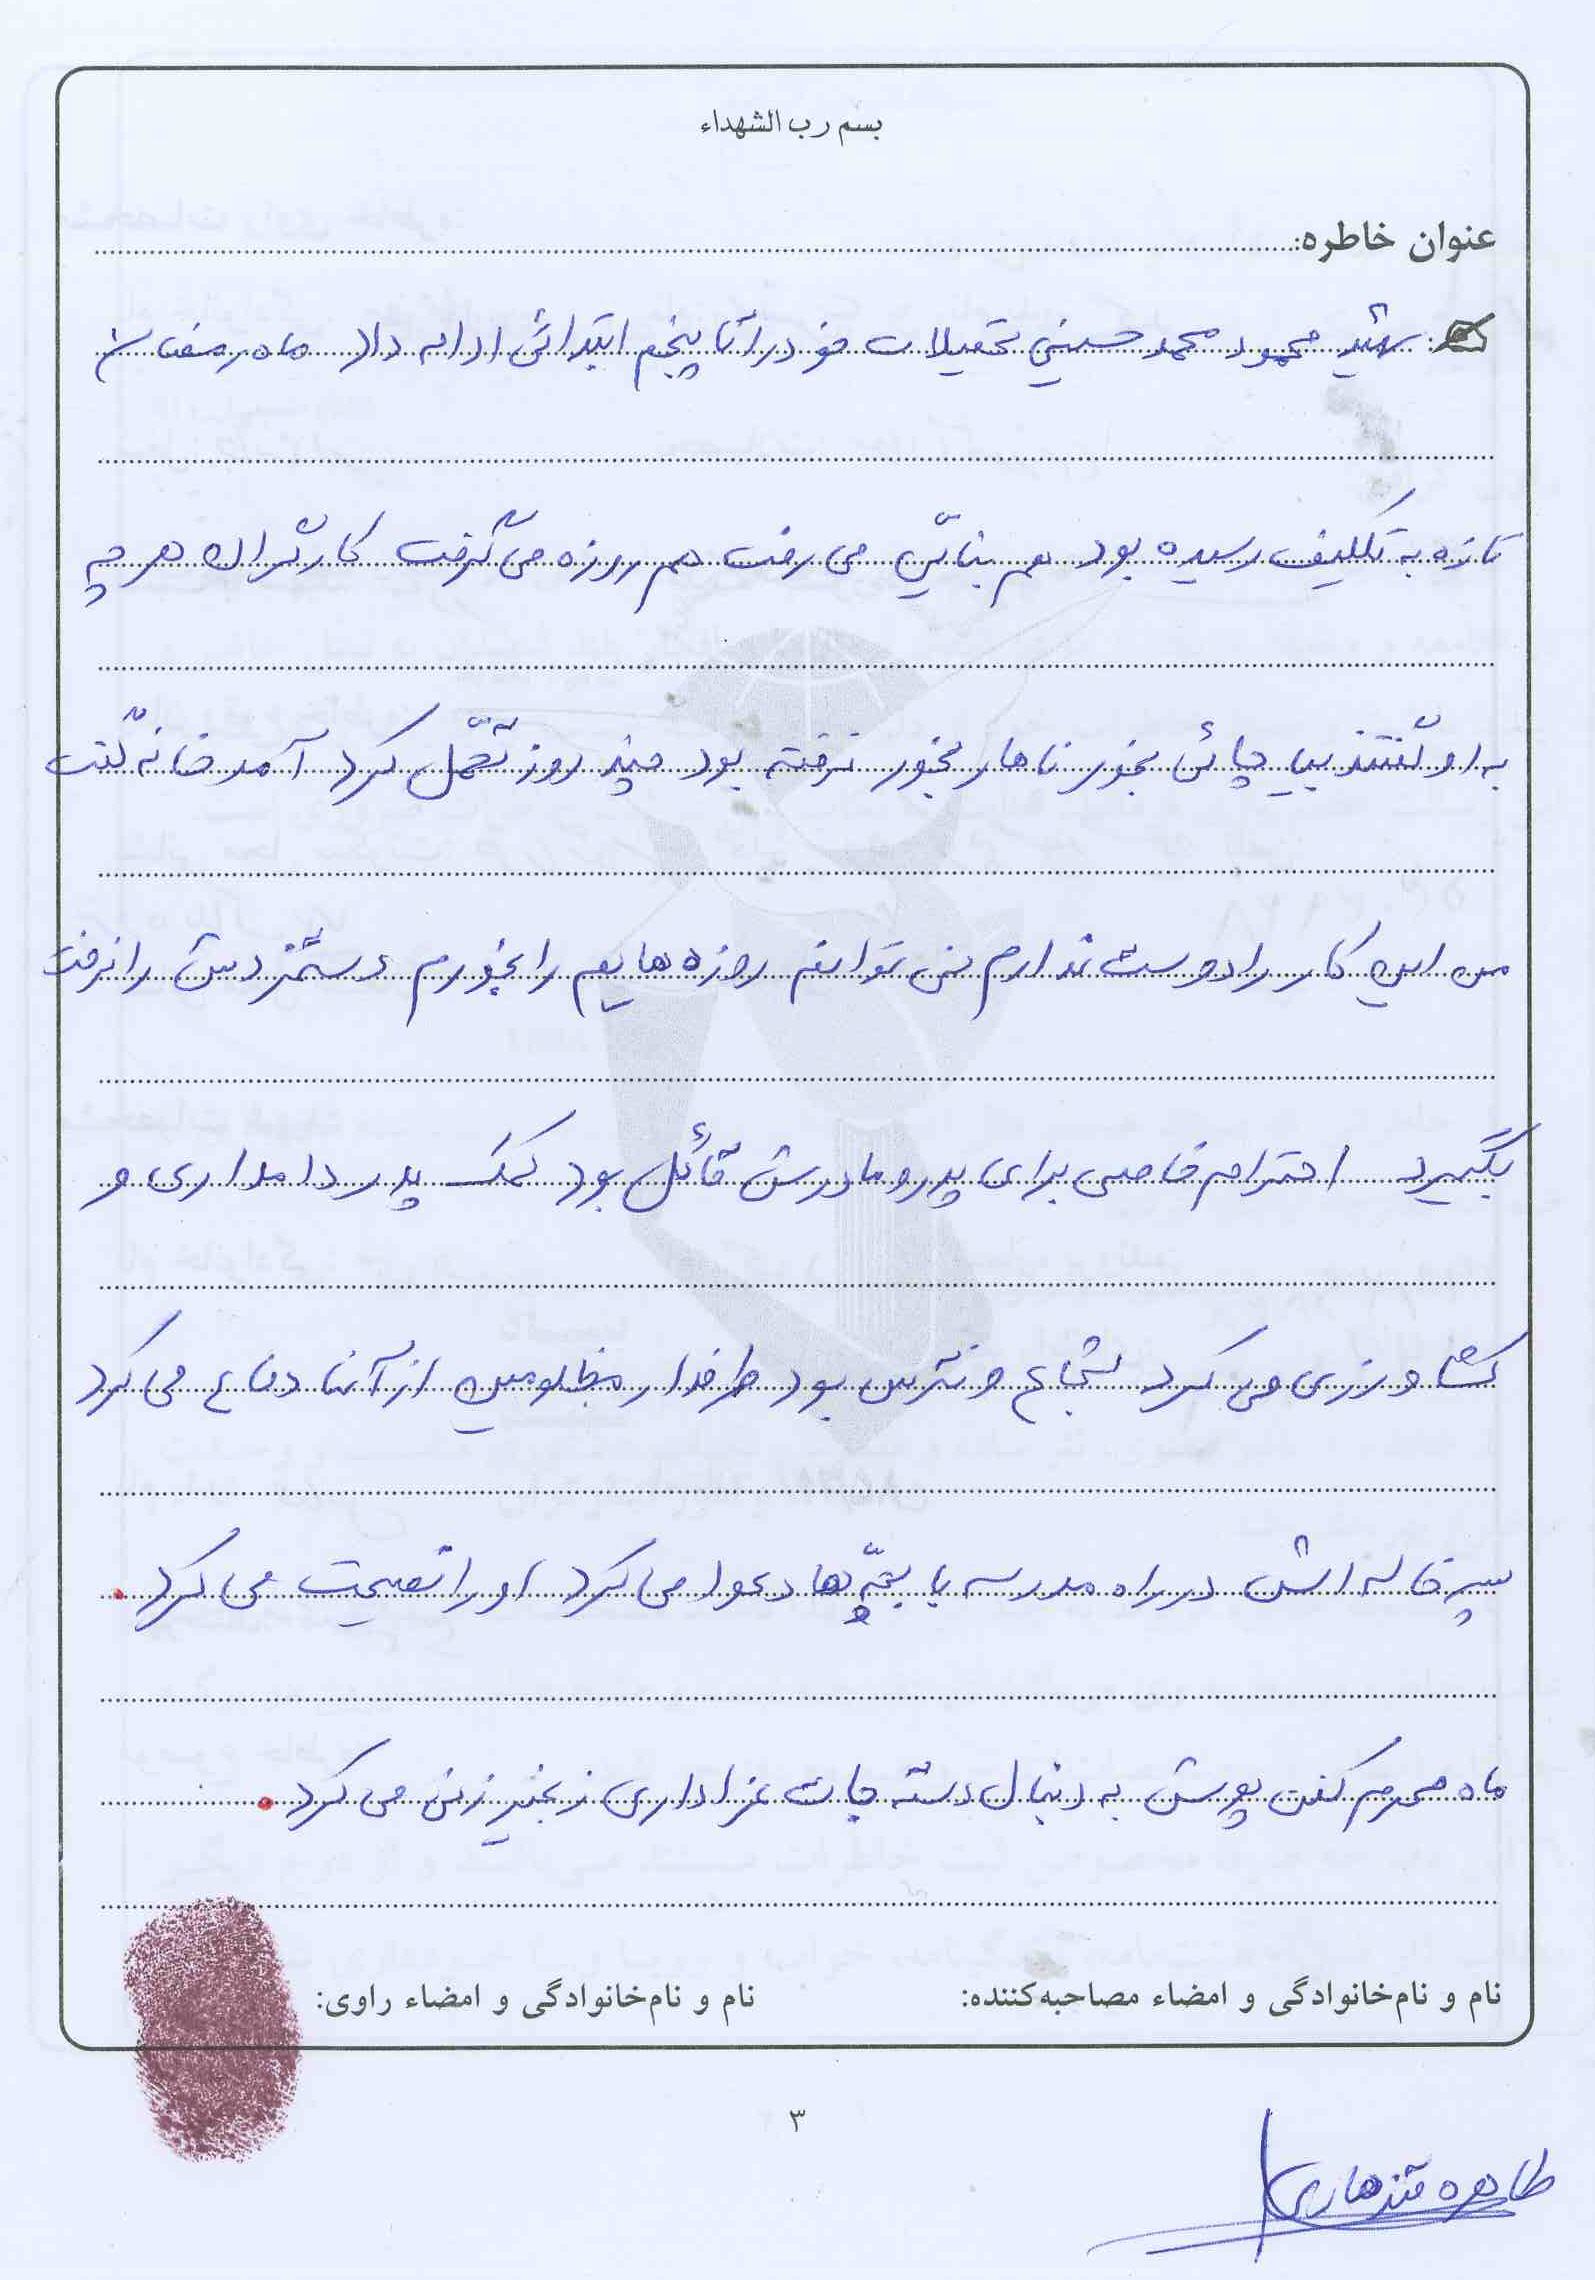 بسم رب الشهداء
عنوان خاطره:
شهید محمود محمدحسینی تحصیلات خود را تا پنجم ابتدائی ادامه داد ماه رمضان
تازه به تکلیف رسیده بود هم بنائی می رفت هم روزه می گرفت کارگران هر چه
به او گفتند بیا چائی بخور ناهار بخور نرفته بود چند روز تحمّل کرد آمد خانه گفت
من این کار را دوست ندارم نمی توانم روزه هایم را بخورم دستمزدش را نرفت
بگیرد احترام خاصی برای پدر و مادرش قائل بود کمک پدر دامداری و
کشاورزی می کرد شجاع و نترس بود طرفدار مظلومین از آنها دفاع می کرد
پسرخاله اش در راه مدرسه با بچّه ها دعوا می کرد او را نصیحت می کرد.
ماه محرم کفن پوش به دنبال دسته جات عزاداری زنجیر زنی می کرد.
نام و نام‌خانوادگی و امضاء مصاحبه‌کننده: نام و نام‌خانوادگی و امضاء راوی:
۳
طاهره قندهاری